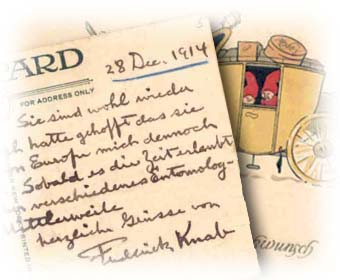 ARD
28 Dec. 1914
FOR ADDRESS ONLY
Sie sind wohl wieder
h hatte gehofft das sie
n Europe mich dennoch
Sobald es die Zeit erlaubt
verschiedenes Entomolog-
ttlerweile
herzliche Grüsse von
Frederick Knab